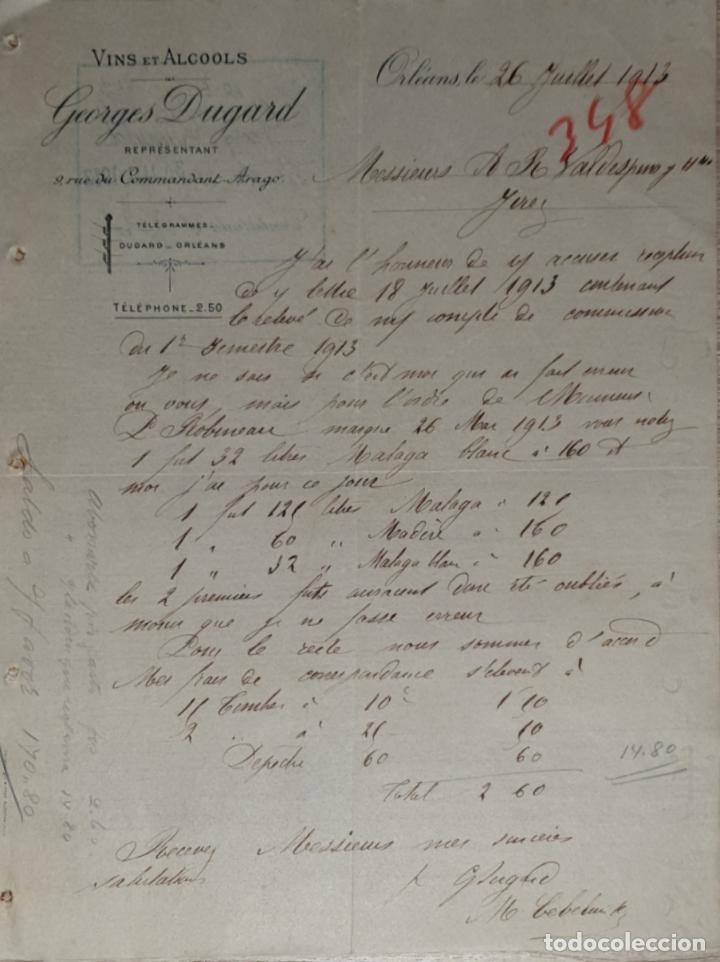 VINS ET ALCOOLS
Georges Dugard
REPRÉSENTANT
9, rue du Commandant-Arago.
TÉLÉGRAMMES_
DUGARD_ORLÉANS
TÉLÉPHONE_2.50
Orléans, le 26 Juillet 1913
348
Messieurs A R Valdespino y Hno
Jerez
J'ai l'honneur de accuser reception
de v lettre 18 Juillet 1913 contenant
le relevé de compte de commission
du 1er Semestre 1913
Je ne sais si c'est moi qui ai fait erreur
ou vous, mais pour l'ordre de Monsieur
Robineau marque 26 Mai 1913 vous notez
1 fut 32 litres Malaga blanc à 160 et
moi j'ai pour ce jour
1 fut 12 litres Malaga à
1 " 60 " Madère à 160
1 " 32 " Malaga blanc à 160
les 2 premiers futs auraient donc été oubliés, à
moins que je ne fasse erreur
Pour le reste nous sommes d'accord
Mes frais de correspondance s'elevent à
11 Timbres à 10c 1 10
2 " à
Depeche 60 60
Total 2 60
14.80
Recevez Messieurs mes sincères
salutations
p GDugard
170.80
2.60
14.80
todocoleccion